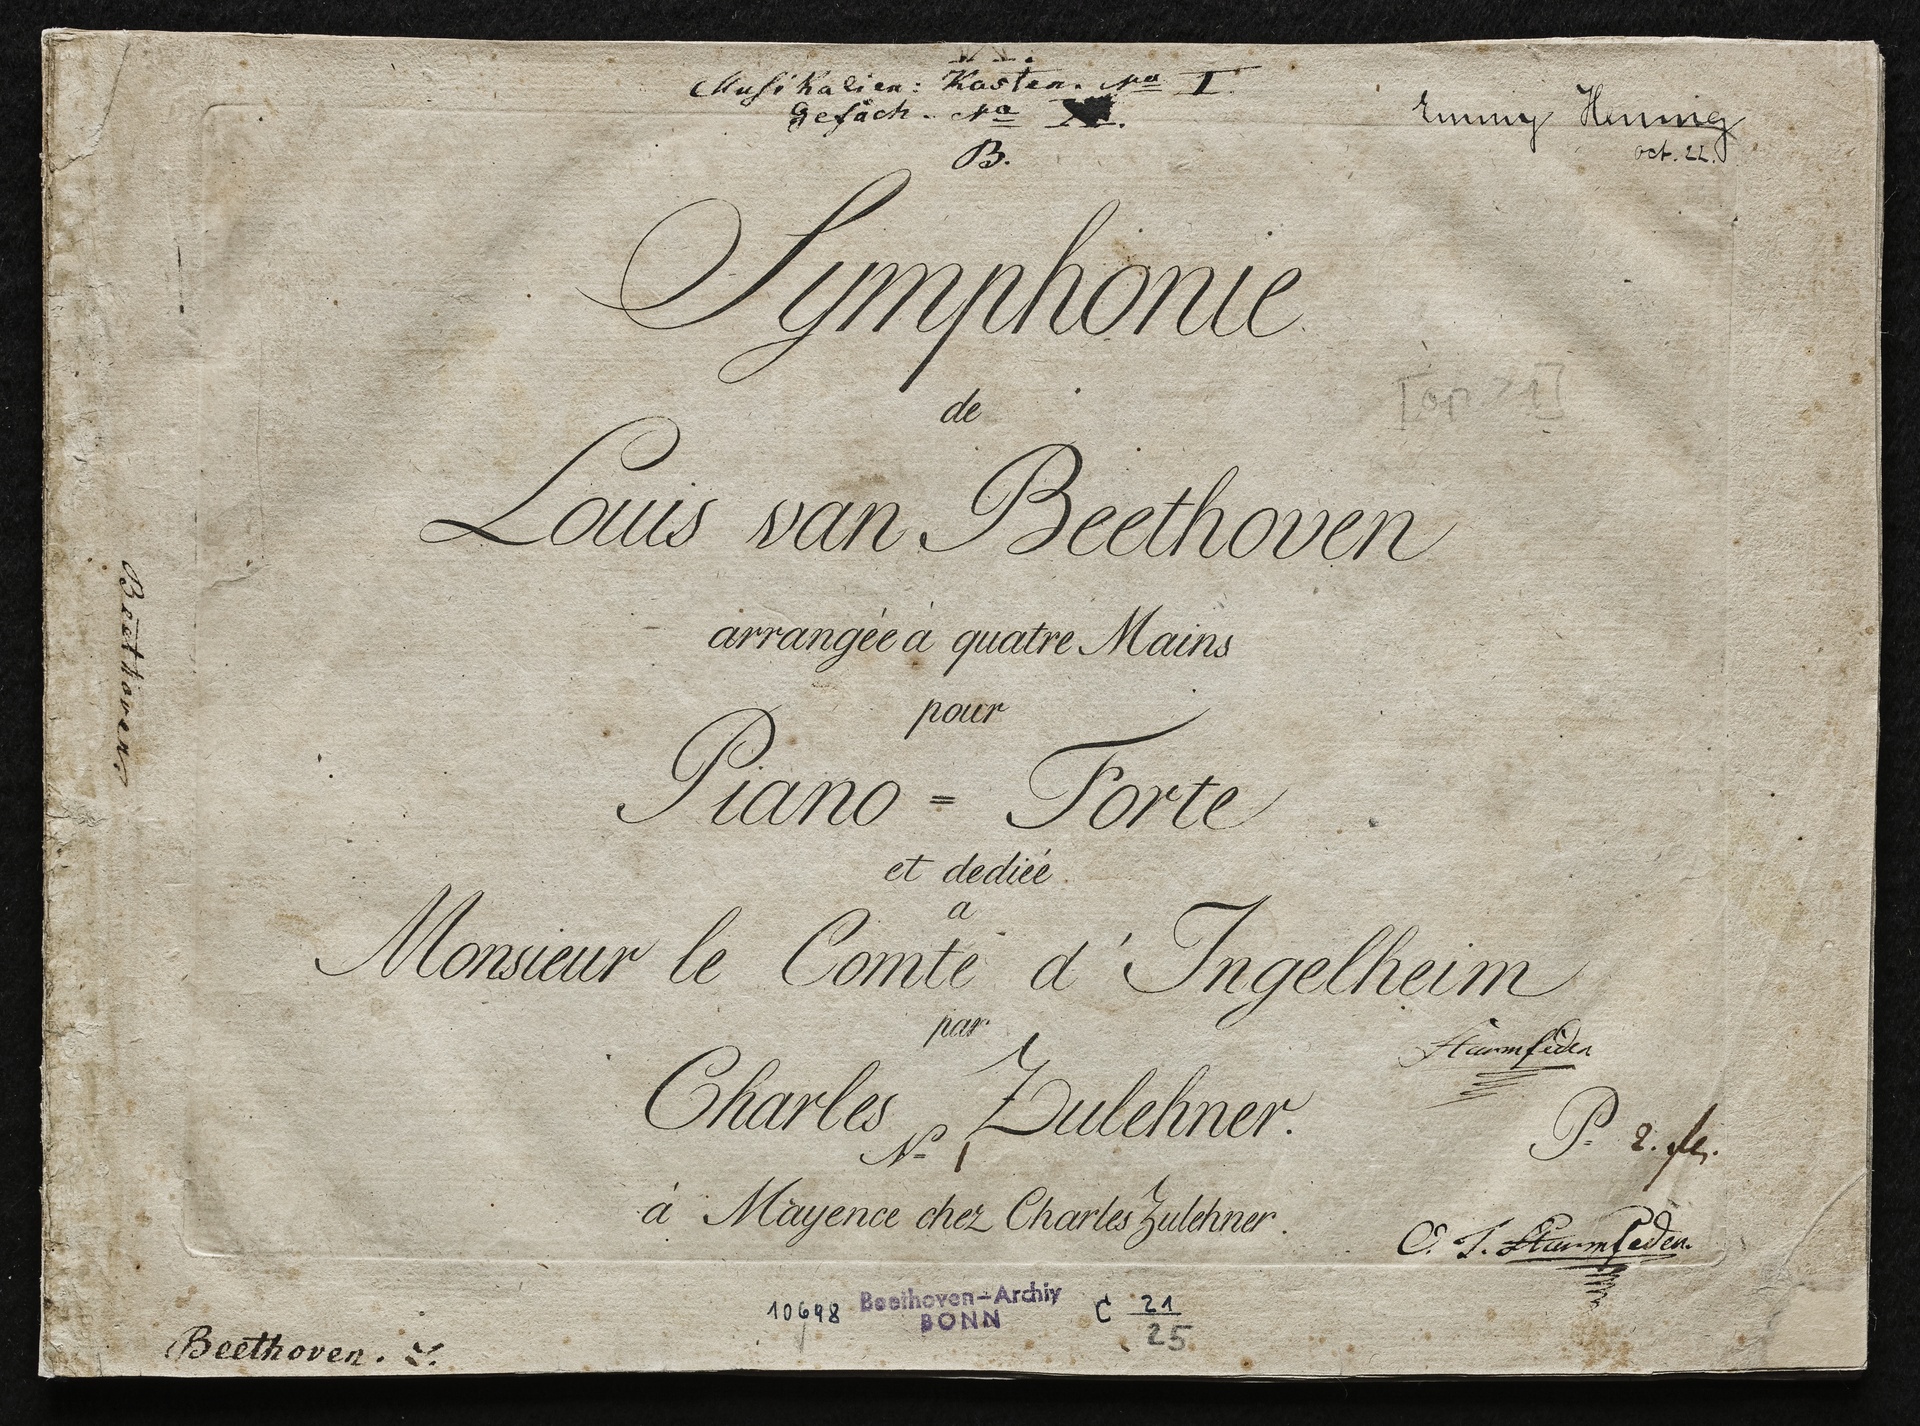 Musikalien: Kasten. No I.
Gefäch. No
B.
Emmy Hennig
oct. 22.
Symphonie
de
[op 21]
Louis van Beethoven
arrangée à quatre Mains
pour
Piano = Forte
et dediée
a
Monsieur le Comte d'Ingelheim
par
Sturmfeder
Charles Zulehner.
No 1
P. 2. fl.
à Mayence chez Charles Zulehner.
C. T. Sturmfeder.
10698 Beethoven-Archiv C 21
BONN 25
Beethoven.
Beethoven.